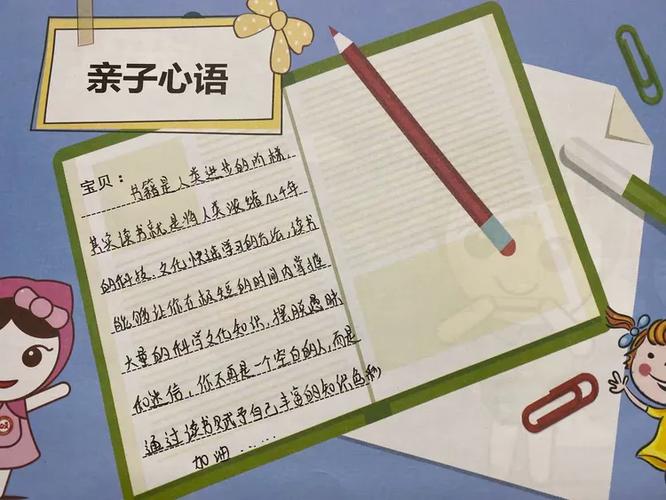 亲子心语
宝贝：
书籍是人类进步的阶梯，
其实读书就是将人类浓缩几千年
的科技、文化快速学习的方法，读书
能够让你在极短的时间内掌握
大量的科学文化知识，摆脱愚昧
和迷信，你不再是一个空白的人，而是
通过读书赋予自己丰富的知识色彩
加油……